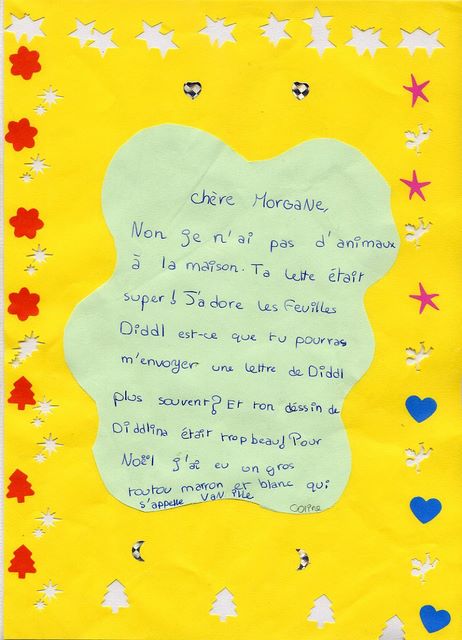 chère Morgane,
Non je n'ai pas d'animaux
à la maison. Ta lette était
super! J'adore les feuilles
Diddl est-ce que tu pourras
m'envoyer une lettre de Diddl
plus souvent? Et ton déssin de
Diddlina était trop beau! Pour
Noël j'ai eu un gros
toutou marron et blanc qui
s'appelle Vanille
Corine